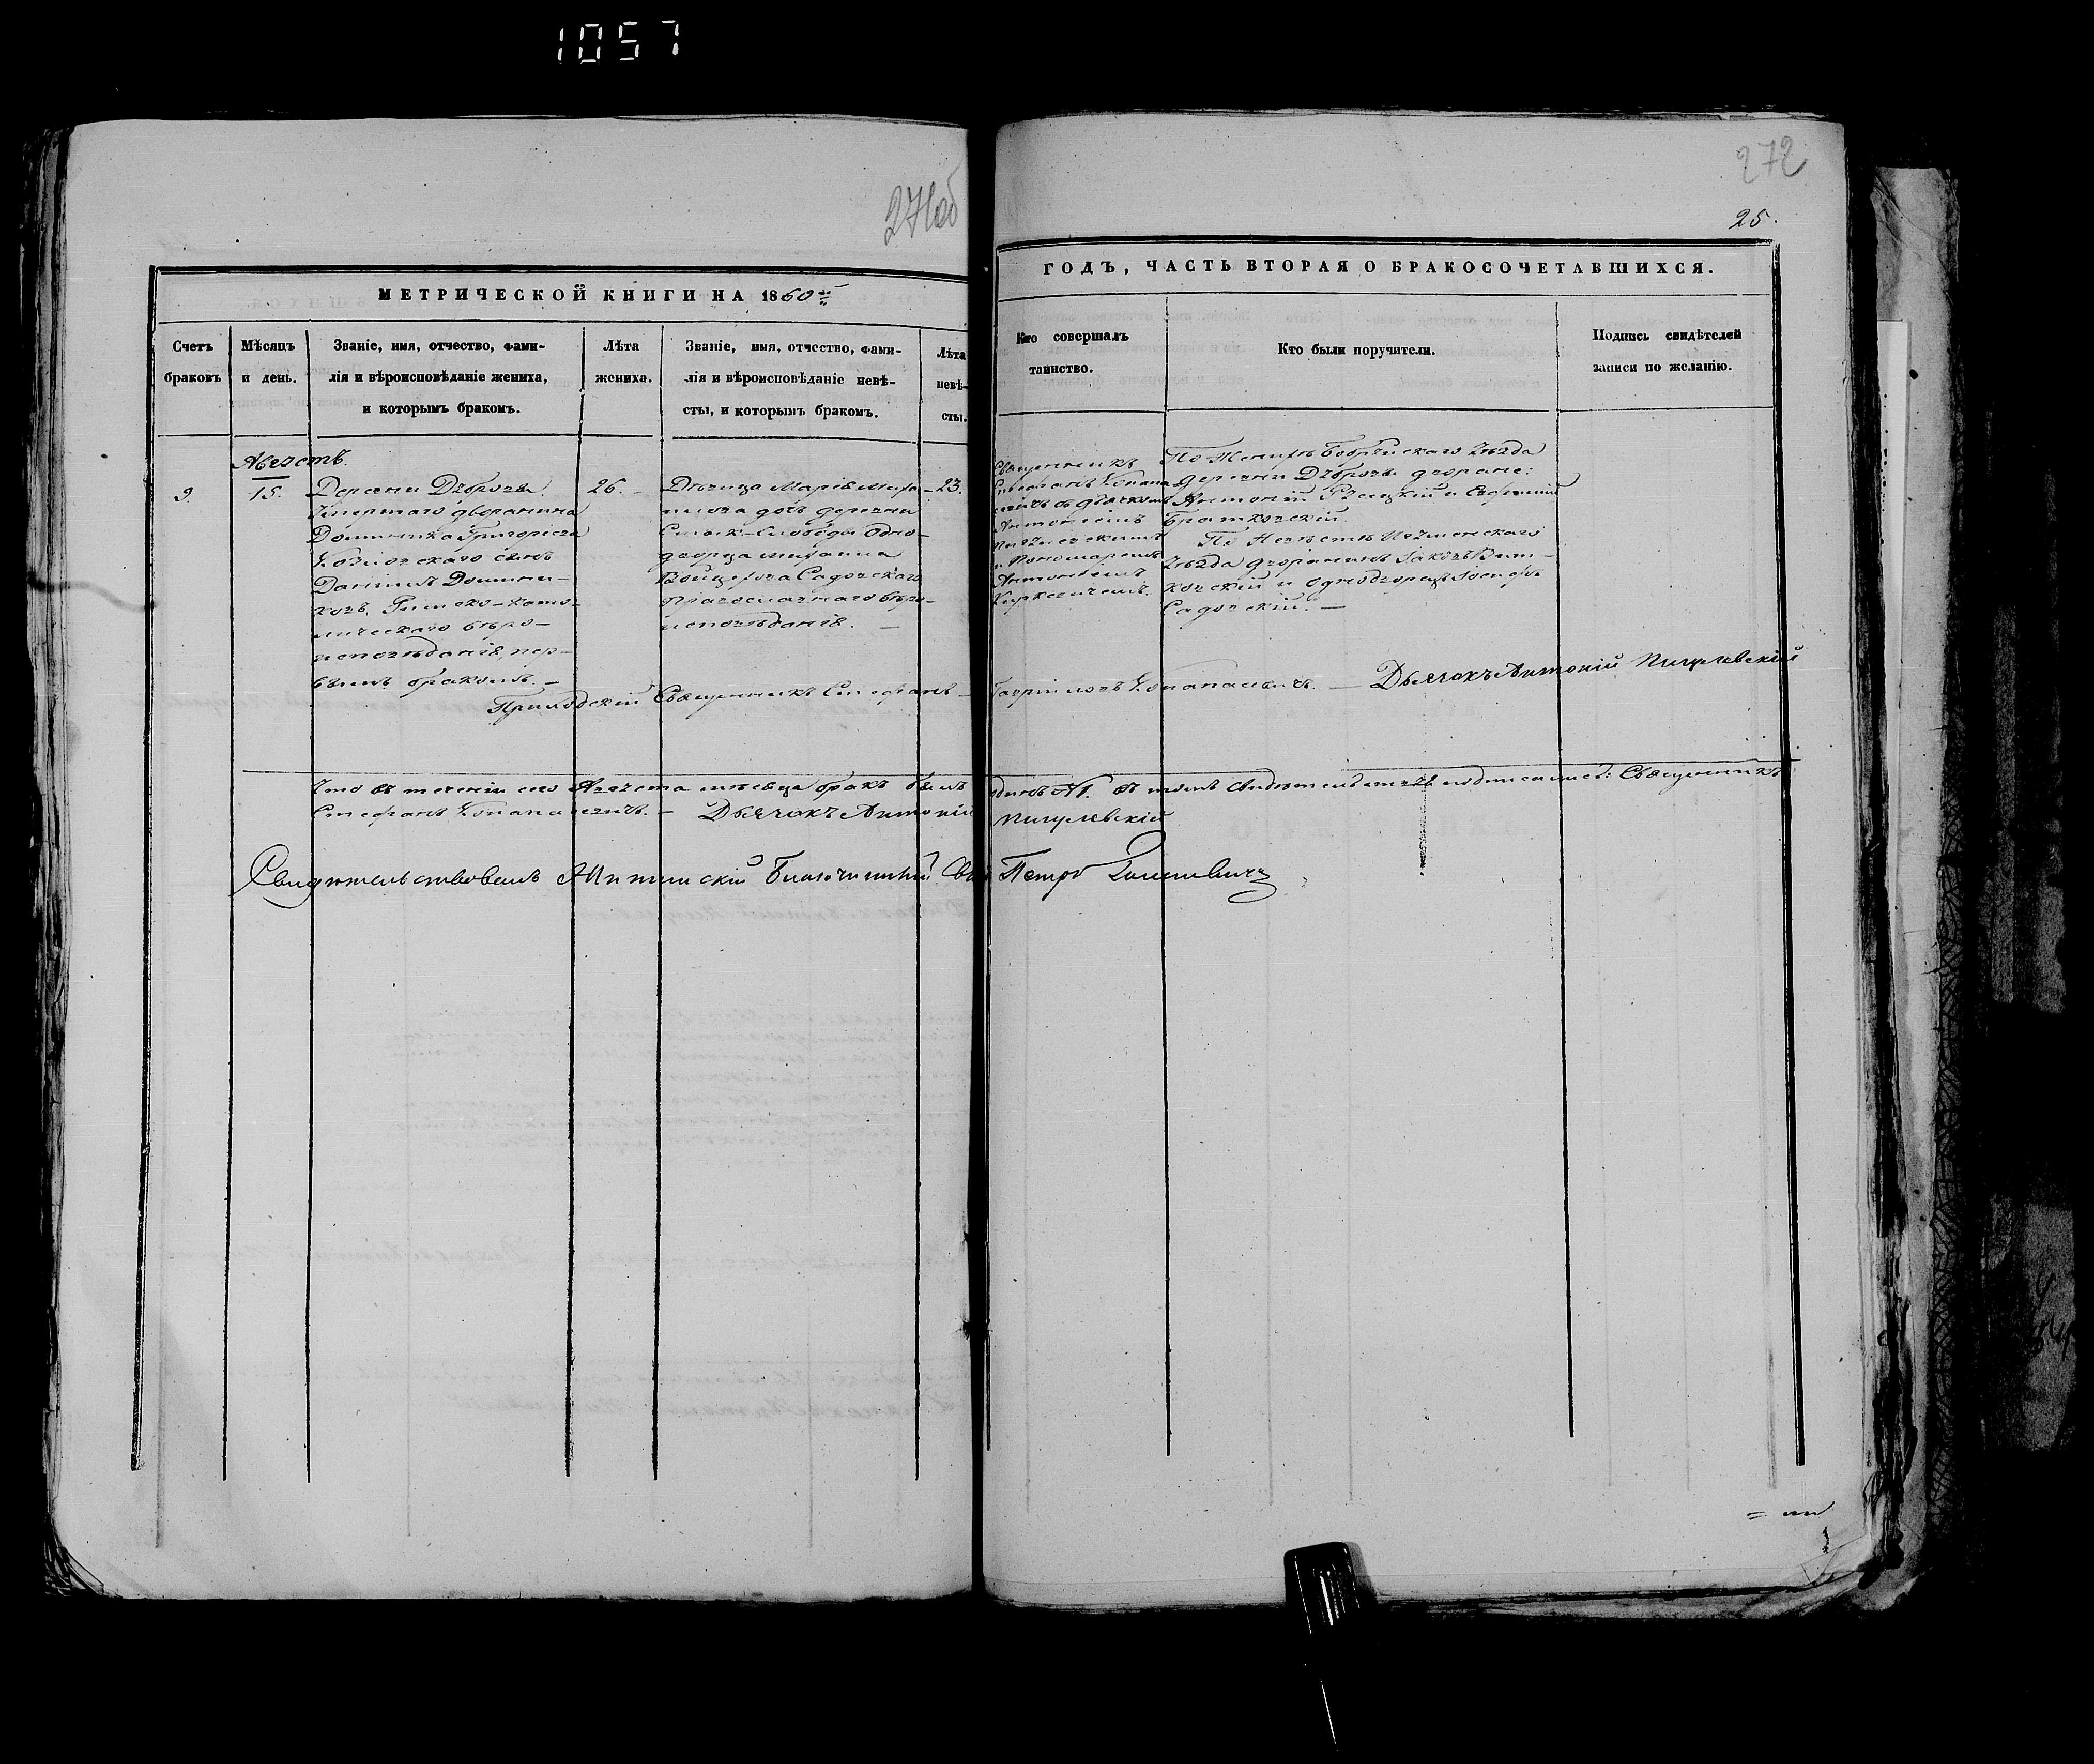 1057
271об
272
25.
МЕТРИЧЕСКОЙ КНИГИ НА 1860й
ГОДЪ, ЧАСТЬ ВТОРАЯ О БРАКОСОЧЕТАВШИХСЯ.
Счетъ
браковъ
Мѣсяцъ
и день.
Званіе, имя, отчество, фами-
лія и вѣроисповѣданіе жениха,
и которымъ бракомъ.
Лѣта
жениха.
Званіе, имя, отчество, фами-
лія и вѣроисповѣданіе невѣ-
сты, и которымъ бракомъ.
Лѣта
невѣ-
сты.
Кто совершалъ
таинство.
Кто были поручители.
Подпись свидѣтелей
записи по желанію.
Августъ.
9.
15.
Деревни Дубровы
умершаго дворянина
Доминика Григорьева
сынъ
Даніилъ Домини-
ковъ, Римско-като-
лическаго вѣро-
исповѣданія, пер-
вымъ бракомъ. —
26. —
Дѣвица Марія Миха-
илова дочь деревни
Слободы Одно-
дворца Михаила
Садовскаго
Православнаго вѣро-
исповѣданія. —
23.
Священникъ
Стефанъ
Антоніемъ
и Пономаремъ
По Женихѣ Бобруйскаго Уѣзда
деревни Дубровы дворяне:
Антоній и
Братковскій.
По Невѣстѣ Игуменскаго
Уѣзда дворянинъ Вит-
ковскій и однодворецъ
Садовскій. —
Приходскій Священникъ Стефанъ — Гавріиловъ — Дьячокъ Антоній Пигулевскій
Что въ теченіи сего Августа мѣсяца бракъ былъ одинъ №1. въ томъ свидѣтельствуя подписались: Священникъ
Стефанъ — Дьячокъ Антоній Пигулевскій
Свидѣтельствовалъ Благочинный Петръ